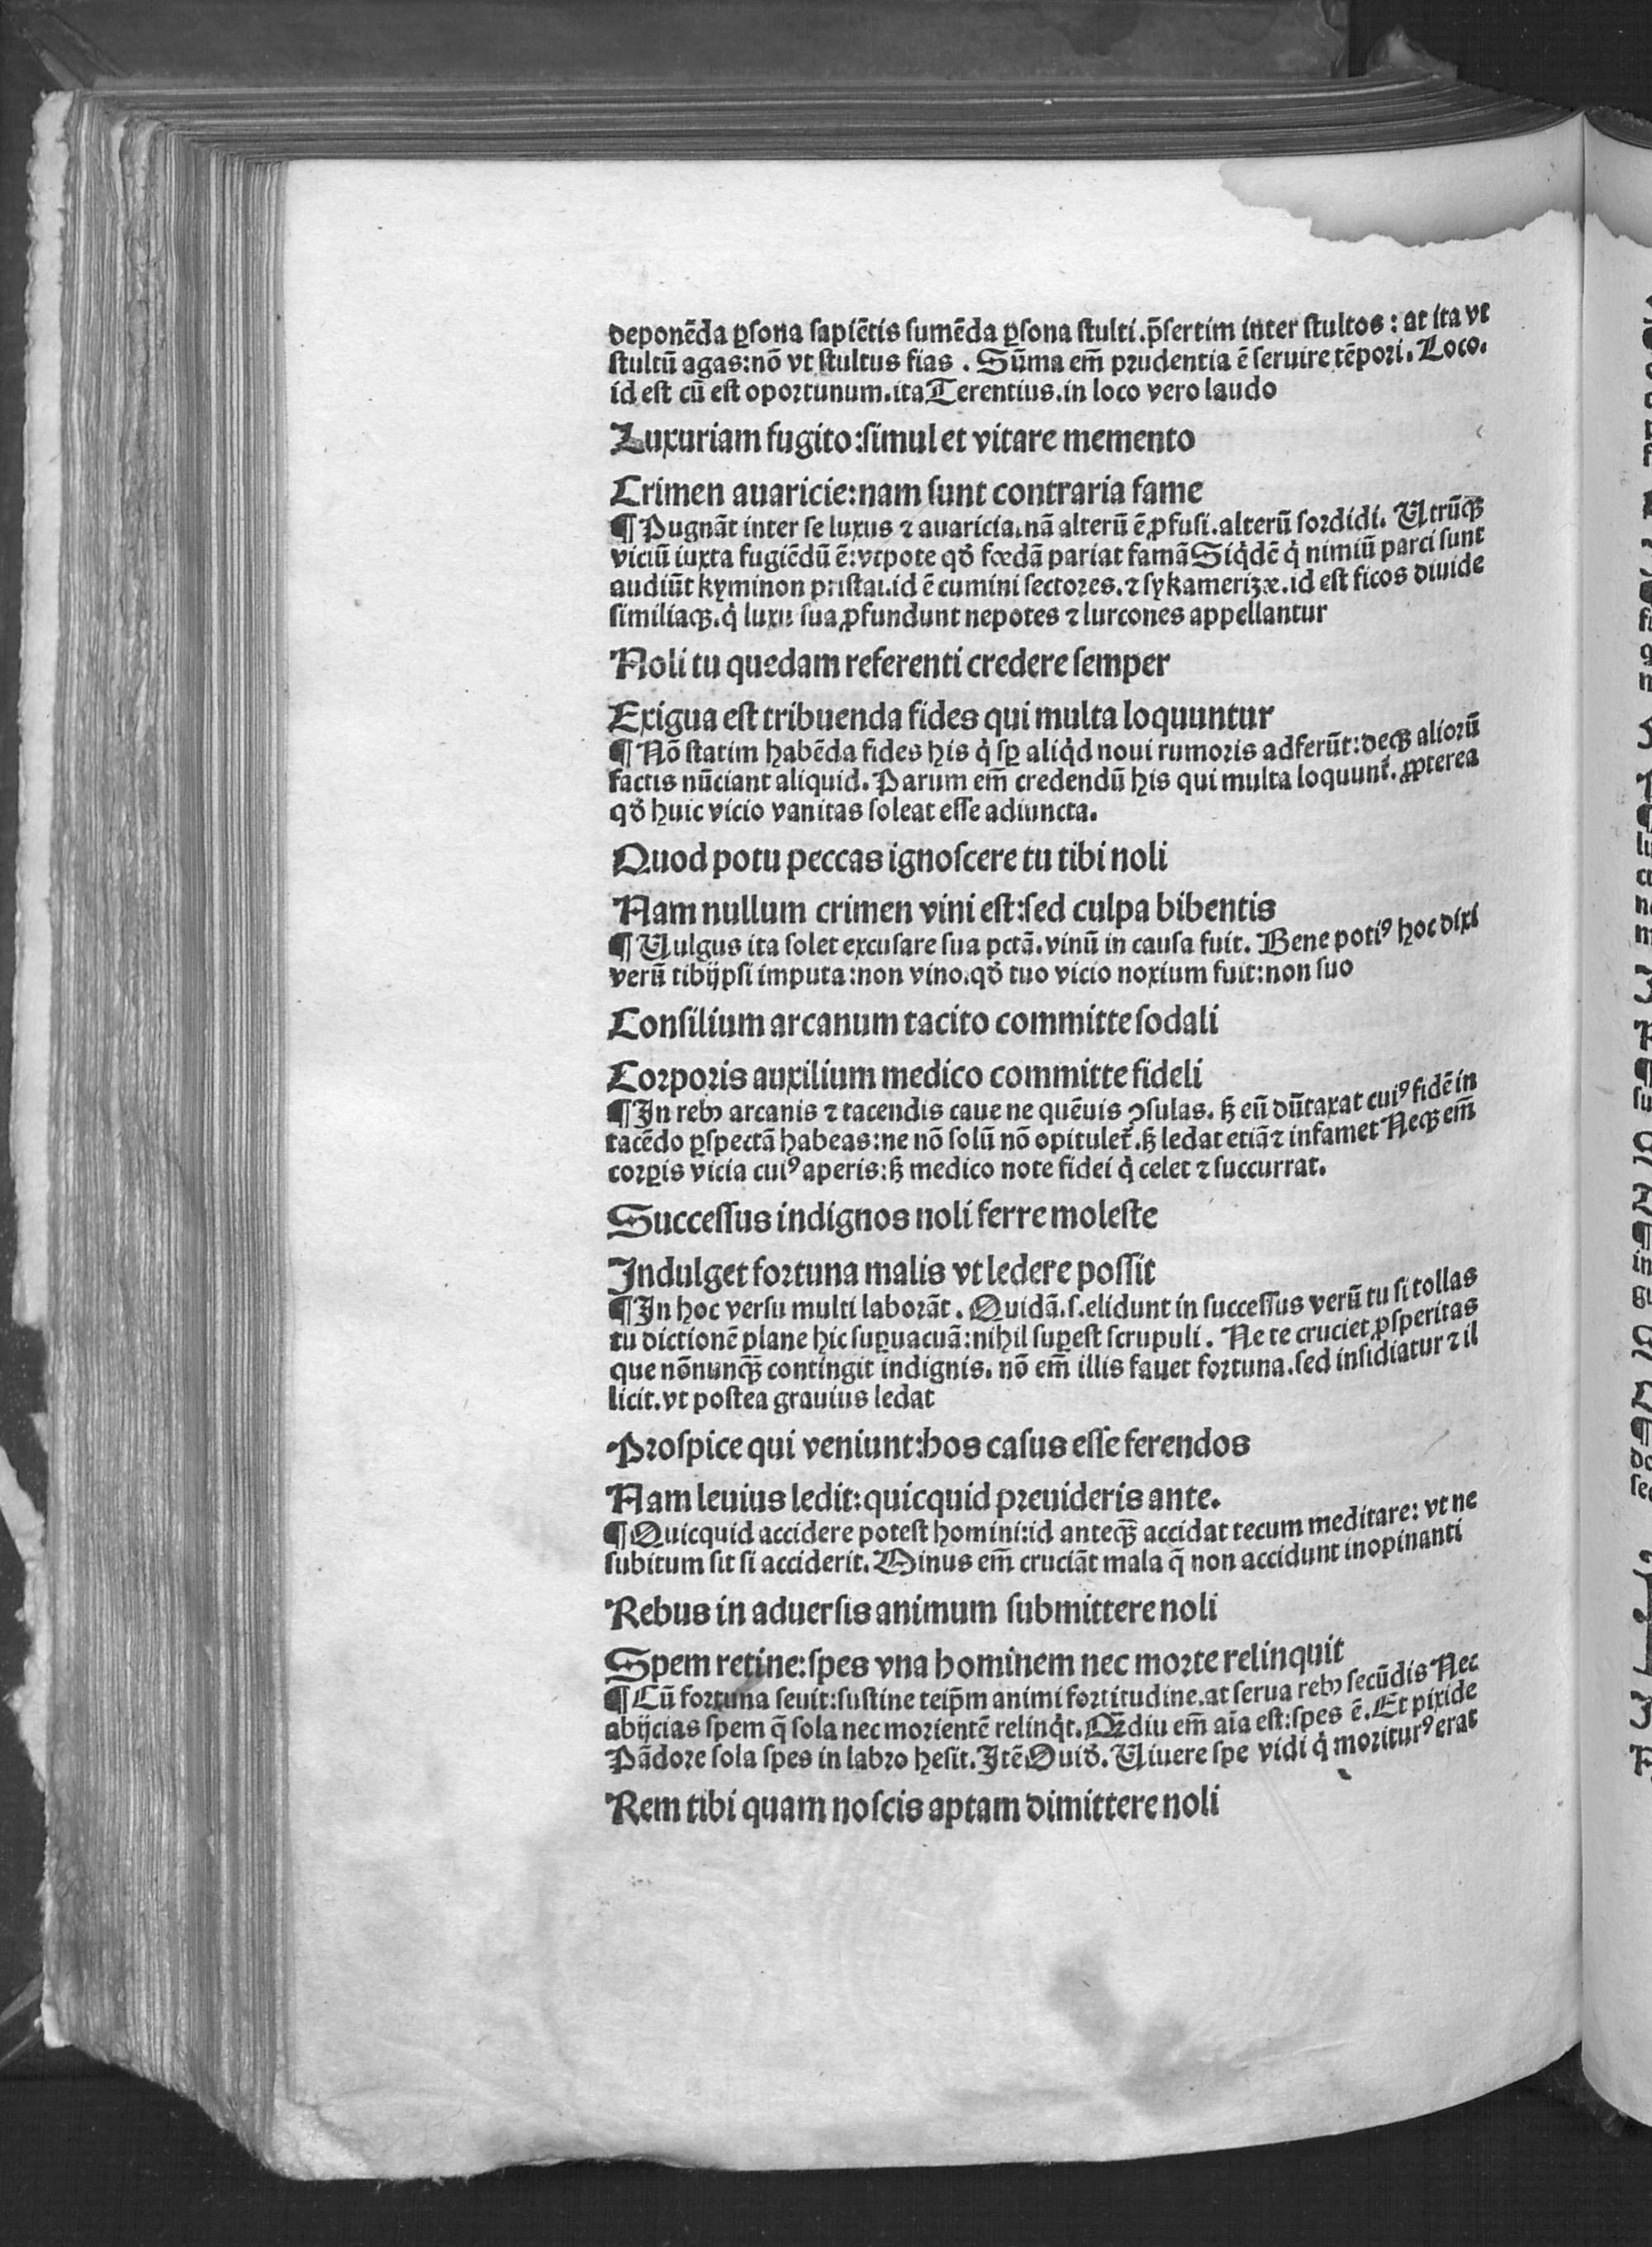 deponẽda ꝑsona sapiẽtis sumẽda ꝑsona stulti.p̃sertim inter stultos : at ita vt
stultũ agas:nõ vt stultus fias . Sũma em̃ prudentia ẽ seruire tẽpori. Loco.
id est cũ est oportunum.ita Terentius.in loco vero laudo
Luxuriam fugito:simul et vitare memento
Crimen auaricie:nam sunt contraria fame
¶ Pugnãt inter se luxus ⁊ auaricia.nã alterũ ẽ ꝓfusi.alterũ sordidi. Utrũqꝫ
viciũ iuxta fugiẽdũ ẽ:vtpote qđ fœdã pariat famã Siq̇dẽ q̇ nimiũ parci sunt
audiũt kyminon pristai.id ẽ cumini sectores.⁊ sykamerizæ.id est ficos diuide
similiaqꝫ.q̇ luxu sua ꝓfundunt nepotes ⁊ lurcones appellantur
Noli tu quedam referenti credere semper
Exigua est tribuenda fides qui multa loquuntur
¶ Nõ statim habẽda fides his q̇ sꝑ aliq̇d noui rumoris adferũt:deqꝫ aliorũ
factis nũciant aliquid. Parum em̃ credendũ his qui multa loquunt᷑. ꝓpterea
qđ huic vicio vanitas soleat esse adiuncta.
Quod potu peccas ignoscere tu tibi noli
Nam nullum crimen vini est:sed culpa bibentis
¶ Uulgus ita solet excusare sua pctã.vinũ in causa fuit. Bene potiꝰ hoc dixi
verũ tibijpsi imputa:non vino.qđ tuo vicio noxium fuit:non suo
Consilium arcanum tacito committe sodali
Corporis auxilium medico committe fideli
¶ In rebꝫ arcanis ⁊ tacendis caue ne quẽuis ꝯsulas. ß eũ dũtaxat cuiꝰ fidẽ in
tacẽdo ꝑspectã habeas:ne nõ solũ nõ opitulet᷑.ß ledat etiã ⁊ infamet Neqꝫ em̃
corꝑis vicia cuiꝰ aperis:ß medico note fidei q̇ celet ⁊ succurrat.
Successus indignos noli ferre moleste
Indulget fortuna malis vt ledere possit
¶ In hoc versu multi laborãt . Quidã.s.elidunt in successus verũ tu si tollas
tu dictionẽ plane hic suꝑuacuã:nihil suꝑest scrupuli . Ne te cruciet ꝓsperitas
que nõnunqꝫ̃ contingit indignis. nõ em̃ illis fauet fortuna.sed insidiatur ⁊ il
licit.vt postea grauius ledat
Prospice qui veniunt:hos casus esse ferendos
Nam leuius ledit:quicquid preuideris ante.
¶ Quicquid accidere potest homini:id anteqꝫ̃ accidat tecum meditare: vt ne
subitum sit si acciderit. Minus em̃ cruciãt mala q̃ non accidunt inopinanti
Rebus in aduersis animum submittere noli
Spem retine:spes vna hominem nec morte relinquit
¶ Cũ fortuna seuit:sustine teip̃m animi fortitudine.at serua rebꝫ secũdis Nec
abijcias spem q̃ sola nec morientẽ relinq̇t. Qꝫ̃diu em̃ aĩa est:spes ẽ. Et pixide
Pãdore sola spes in labro hesit. Itẽ Ouiđ. Uiuere spe vidi q̇ moriturꝰ erat
Rem tibi quam noscis aptam dimittere noli